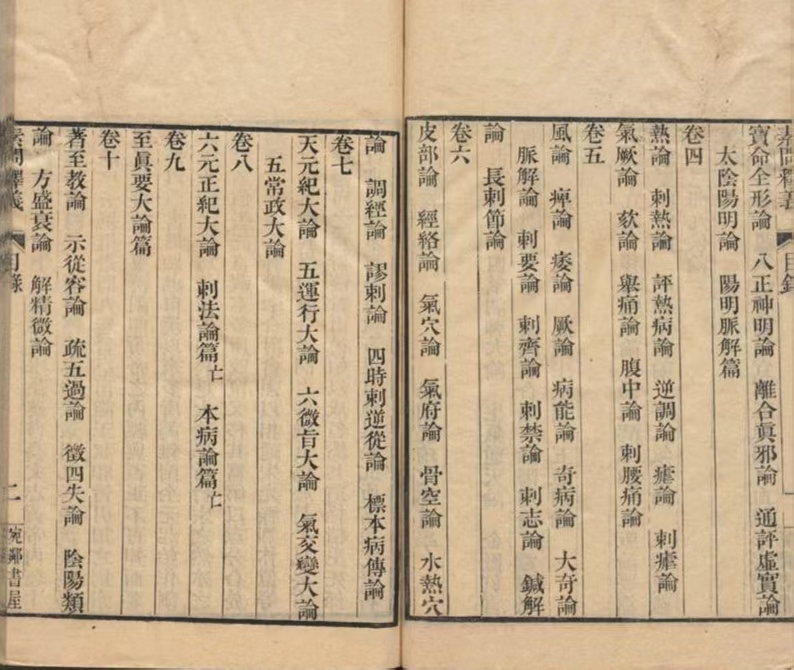 素問釋義 目錄
寶命全形論 八正神明論 離合眞邪論 通評虛實論
太陰陽明論 陽明脈解篇
卷四
熱論 刺熱論 評熱病論 逆調論 瘧論 刺瘧論
氣厥論 欬論 舉痛論 腹中論 刺腰痛論
卷五
風論 痺論 痿論 厥論 病能論 奇病論 大奇論
脈解論 刺要論 刺齊論 刺禁論 刺志論 鍼解
論 長刺節論
卷六
皮部論 經絡論 氣穴論 氣府論 骨空論 水熱穴
論 調經論 謬刺論 四時刺逆從論 標本病傳論
卷七
天元紀大論 五運行大論 六微旨大論 氣交變大論
五常政大論
卷八
六元正紀大論 刺法論篇亡 本病論篇亡
卷九
至眞要大論篇
卷十
著至教論 示從容論 疏五過論 徵四失論 陰陽類
論 方盛衰論 解精微論
素問釋義 目錄 二 宛鄰書屋